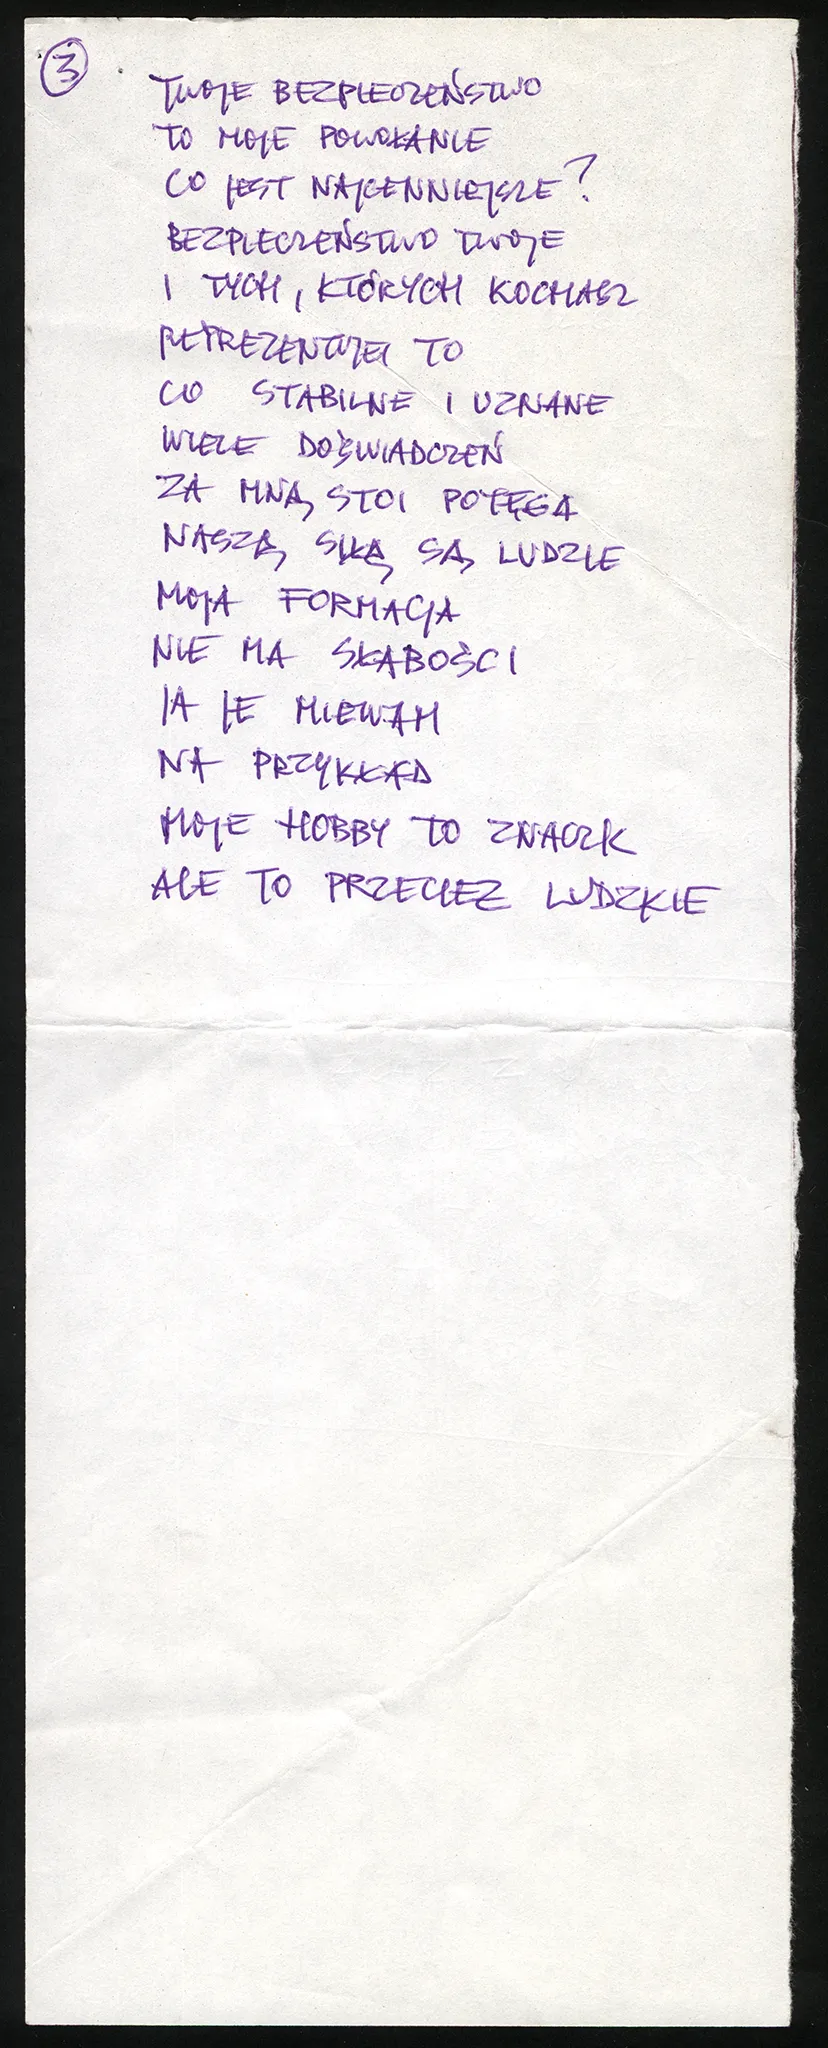 3
TWOJE BEZPIECZEŃSTWO
TO MOJE POWOŁANIE
CO JEST NAJCENNIEJSZE?
BEZPIECZEŃSTWO TWOJE
I TYCH, KTÓRYCH KOCHASZ
REPREZENTUJĘ TO
CO STABILNE I UZNANE
WIELE DOŚWIADCZEŃ
ZA MNĄ STOI POTĘGA
NASZĄ SIŁĄ SĄ LUDZIE
MOJA FORMACJA
NIE MA SŁABOŚCI
JA JE MIEWAM
NA PRZYKŁAD
MOJE HOBBY TO ZNACZK
ALE TO PRZECIEŻ LUDZKIE